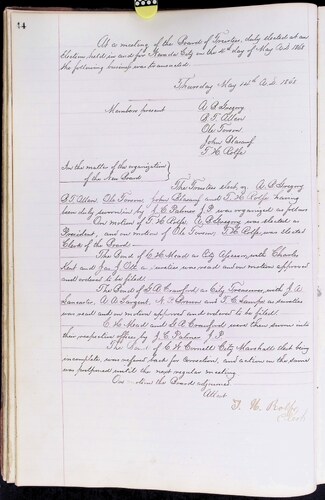 44
At a meeting of the Board of Trustees, duly elected at an
Election held in and for Nevada City on the 4th day of May A.D. 1868
the following business was transacted.
Thursday May 14th A.D. 1868
Members present A. B. Gregory
B. F. Allen
Ole Toreson
John
T. H. Rolfe
In the matter of the organization
of the New Board
The Trustees elect, viz. A. B. Gregory
B. F. Allen Ole Toreson John and T. H. Rolfe having
been duly sworn in by J. C. Palmer J.P. was organized as follows
On motion of T. H. Rolfe, A. B. Gregory was elected as
President, and on motion of Ole Toreson, T. H. Rolfe, was elected
Clerk of the Board.
The Bond of E. H. Mead as City Assessor, with Charles
Kent and as sureties, was read and on motion approved
and ordered to be filed.
The Bond of G. A. Crawford as City Treasurer, with J. A.
Lancaster, A. A. Sargent, N. P. and T. C. as sureties
was read and on motion approved and ordered to be filed.
E. H. Mead and G. A. Crawford were then sworn into
their respective offices by J. C. Palmer J.P.
The Bond of C. W. Cornell City Marshall that being
incomplete, was refered back for correction, and action in the same
was postponed until the next regular meeting
On motion the Board adjourned
Attest
T. H. Rolfe
Clerk